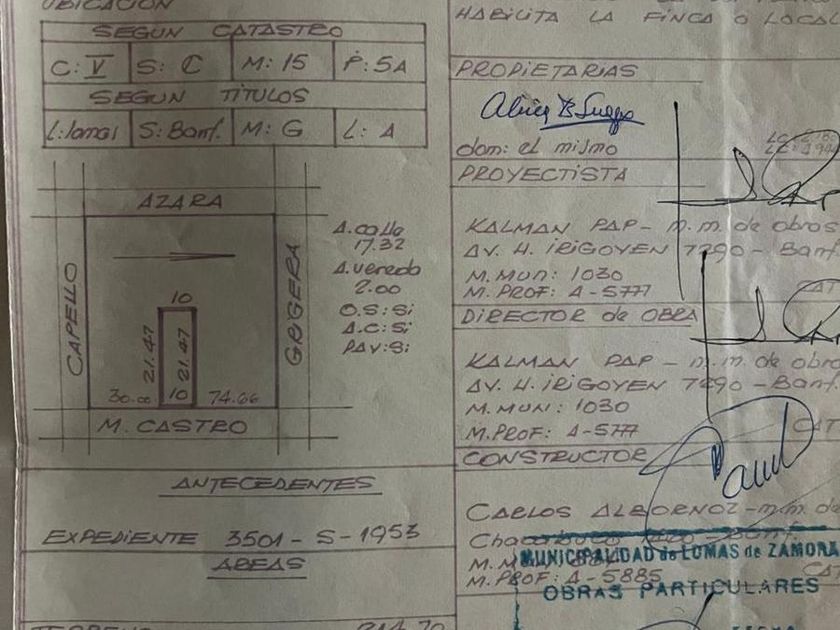 UBICACIÓN
SEGUN CATASTRO
C: V S: C M: 15 P: 5A
SEGUN TÍTULOS
L: lomas S: Banf. M: G L: A
AZARA
CAPELLO
GRIGERA
10
21.47
21.47
30.00 10 74.66
M. CASTRO
A. calle
17.32
A. vereda
2.00
O.S: Si
A.C: Si
PAV: Si
ANTECEDENTES
EXPEDIENTE 3501 - S - 1953
AREAS
TERRENO
HABILITA LA FINCA O LOCAL
PROPIETARIAS
dom: el mismo
PROYECTISTA
KALMAN PAP - m.m. de obras
AV. H. IRIGOYEN 7290 - Banf.
M. MUN: 1030
M. PROF: A-5777
DIRECTOR de OBRA
KALMAN PAP - m.m. de obra
AV. H. IRIGOYEN 7290 - Banf
M. MUN: 1030
M. PROF: A-5777
CAT
CONSTRUCTOR
CARLOS ALBORNOZ - m.m. de
MUNICIPALIDAD de LOMAS de ZAMORA
M. PROF: A-5885
OBRAS PARTICULARES